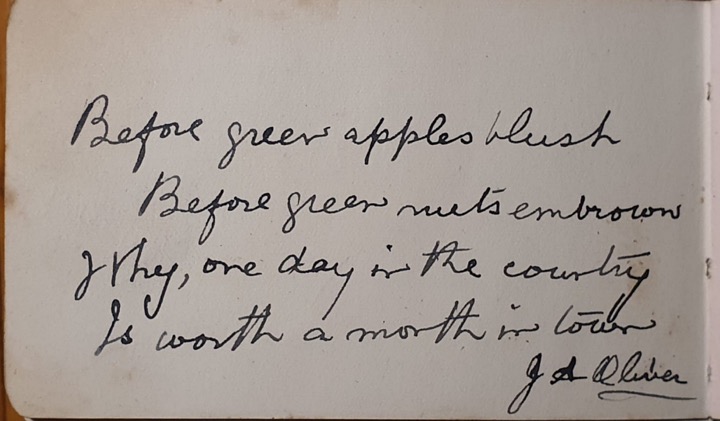 Before green apples blush
Before green nuts embrown
Why, one day in the country
Is worth a month in town
J A Oliver